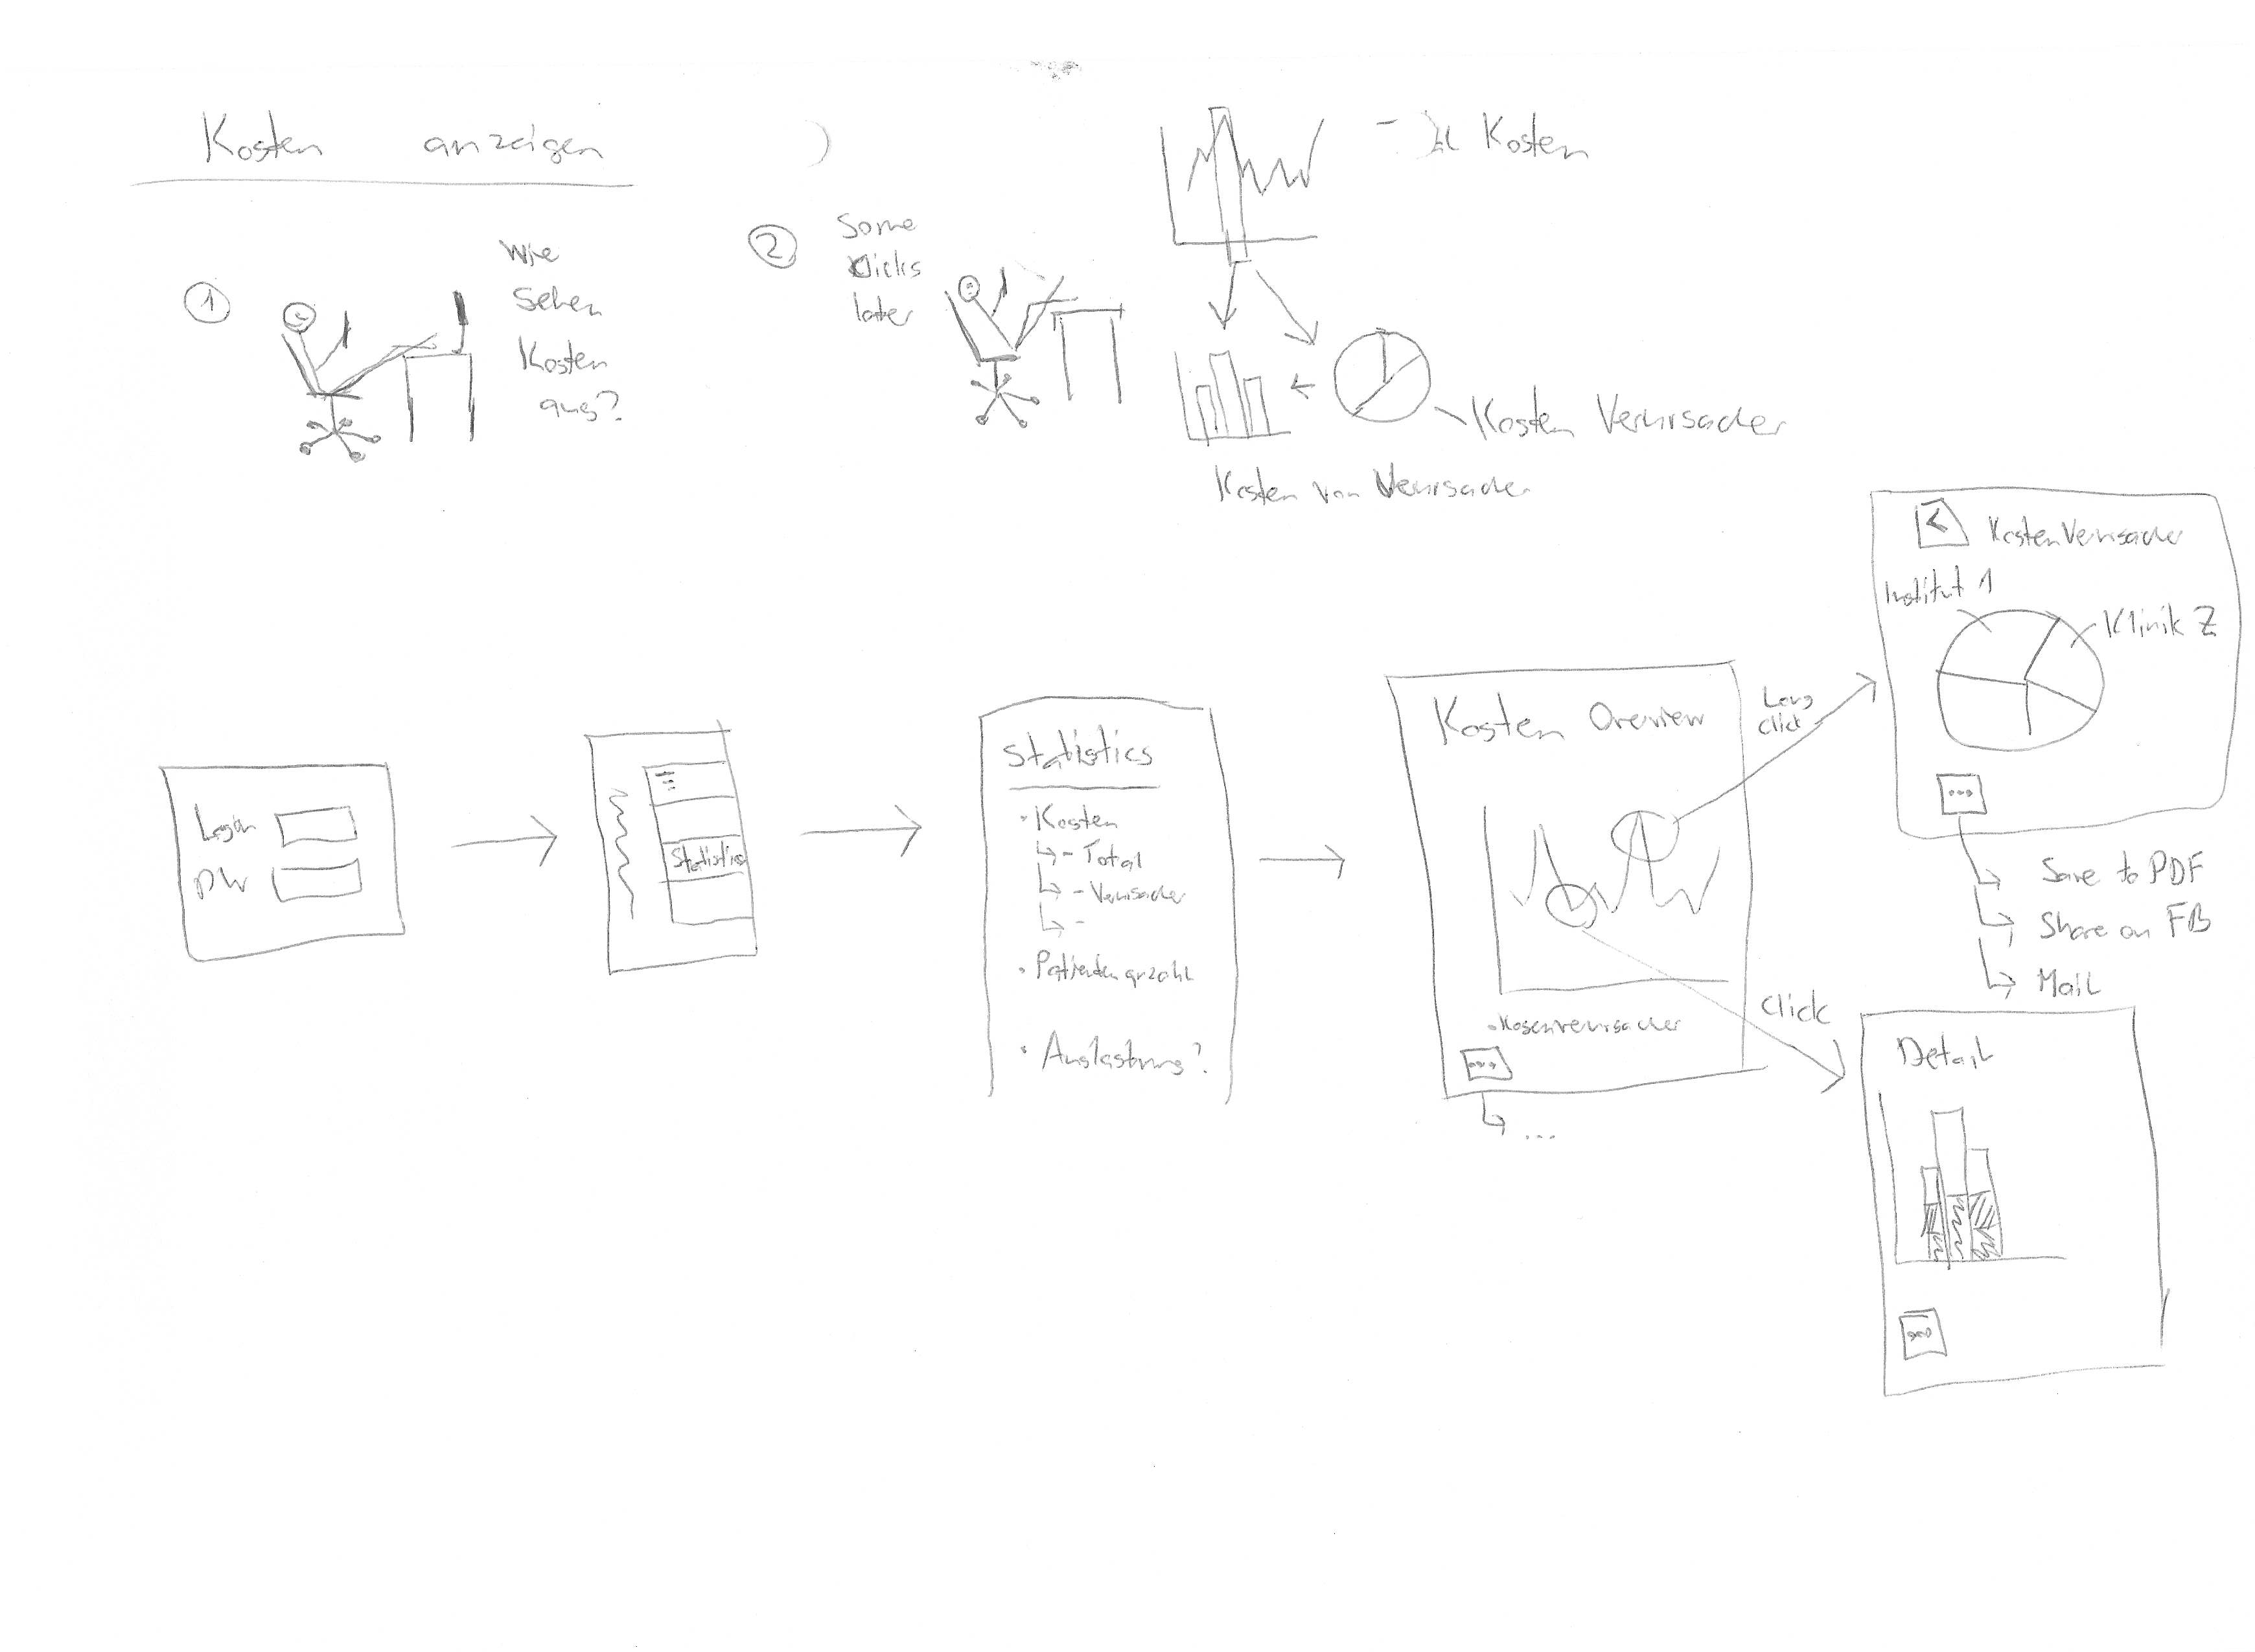 Kosten anzeigen
1
Wie
sehen
Kosten
aus?
2
Some
Clicks
later
Kosten
Kosten Verursacher
Kosten von Verursacher
Login
PW
Statistics
Statistics
• Kosten
- Total
- Verursacher
-
• Patientenanzahl
• Auslastung?
Kosten Overview
• Kosenverursacher
...
...
Long
Click
Click
< KostenVerursacher
Institut 1
Klinik Z
...
Save to PDF
Share on FB
Mail
Detail